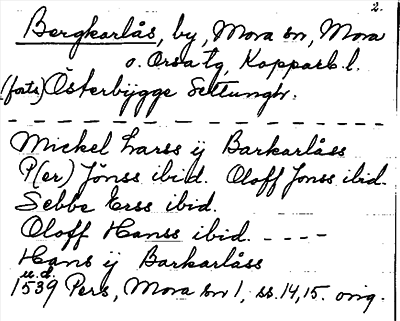 2.
Bergkarlås, by, Mora sn, Mora
o. Orsa tg, Kopparb. l.
(forts) Österbygge Settungh.
Mickel Larss ij Barkarlåss
P(er) Jönss ibid. Oloff Jonss ibid.
Sebbe Erss ibid.
Oloff Hanss ibid. - - - -
Hans ij Barkarlåss
u.d.
1539 Pers, Mora sn 1, ss. 14, 15. orig.